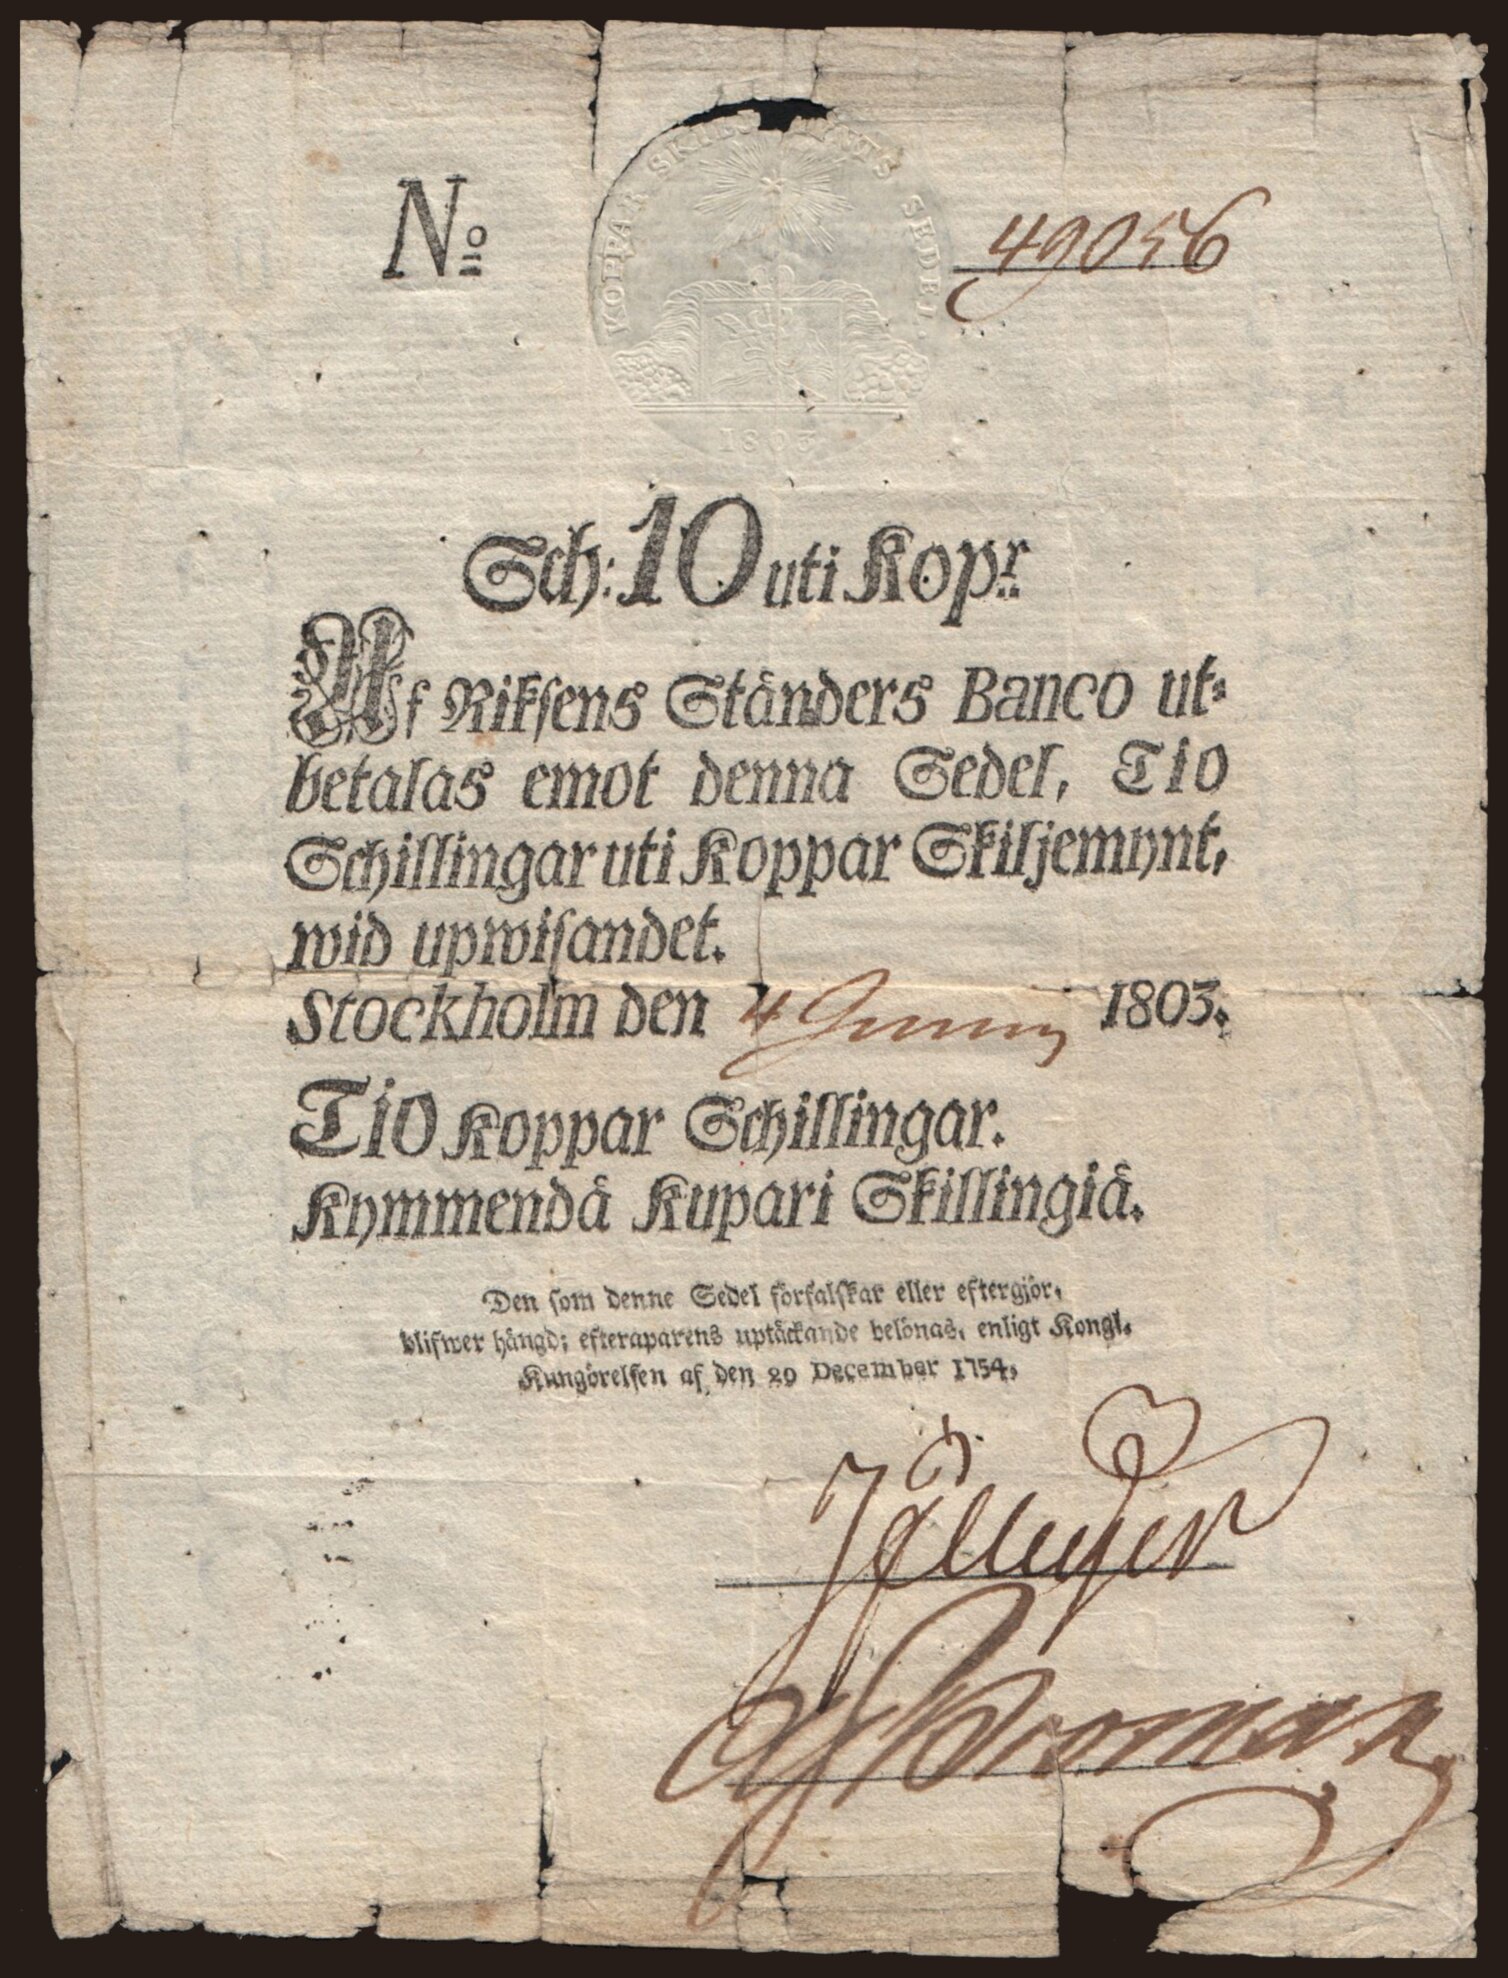 KOPPAR SKILJEMYNTS SEDEL.
1803
No 49056
Sch: 10 uti Kopr
Af Riksens Ständers Banco ut-
betalas emot denna Sedel, Tio
Schillingar uti Koppar Skiljemynt,
wid upwisandet.
Stockholm den 4 Junii 1803.
Tio Koppar Schillingar.
Kymmendä Kupari Skillingiä.
Den som denne Sedel förfalskar eller eftergjör,
blifwer hängd; efteraparens uptäckande belönas, enligt Kongl.
Kungörelsen af den 29 December 1754.
Broman